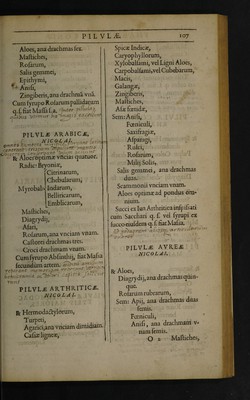 PILVLÆ. 107
Aloes, ana drachmas sex.
Mastiches,
Rosarum,
Salis gemmei,
Epithymi,
Anisi,
Zingiberis, ana drachmã vnã.
Cum syrupo Rosarum pallidarum
q. s. fiat Massa s. a.
PILVLÆ ARABICÆ,
NICOLAI.
℞ Aloes optimæ vncias quatuor.
Radic: Bryoniæ,
Myrobala: Citrinarum,
Chebularum,
Indarum,
Bellericarum,
Emblicarum,
Mastiches,
Diagrydij,
Asari,
Rosarum, ana vnciam vnam.
Castorei drachmas tres.
Croci drachmam vnam.
Cum syrupo Absinthij, fiat Massa
secundùm artem.
PILVLÆ ARTHRITICÆ,
NICOLAI.
℞ Hermodactylorum,
Turpeti,
Agarici, ana vnciam dimidiam.
Casiæ ligneæ,
Spicæ Indicæ,
Caryophyllorum,
Xylobalsami, vel Ligni Aloes,
Carpobalsami, vel Cubebarum,
Macis,
Galangæ,
Zingiberis,
Mastiches,
Asæ fœtidæ,
Sem: Anisi,
Fœniculi,
Saxifragiæ,
Asparagi,
Rusci,
Rosarum,
Milij Solis,
Salis gemmei, ana drachmas
duas.
Scammonij vnciam vnam.
Aloes optimæ ad pondus om-
nium.
Succi ex Iua Arthritica inspissati
cum Sacchari q. s. vel syrupi ex
succo eiusdem q. s. fiat Massa.
PILVLÆ AVREÆ
NICOLAI.
℞ Aloes,
Diagrydij, ana drachmas quin-
que.
Rosarum rubrarum,
Sem: Apij, ana drachmas duas
semis.
Fœniculi,
Anisi, ana drachmam v-
nam semis.
O 2 Mastiches,